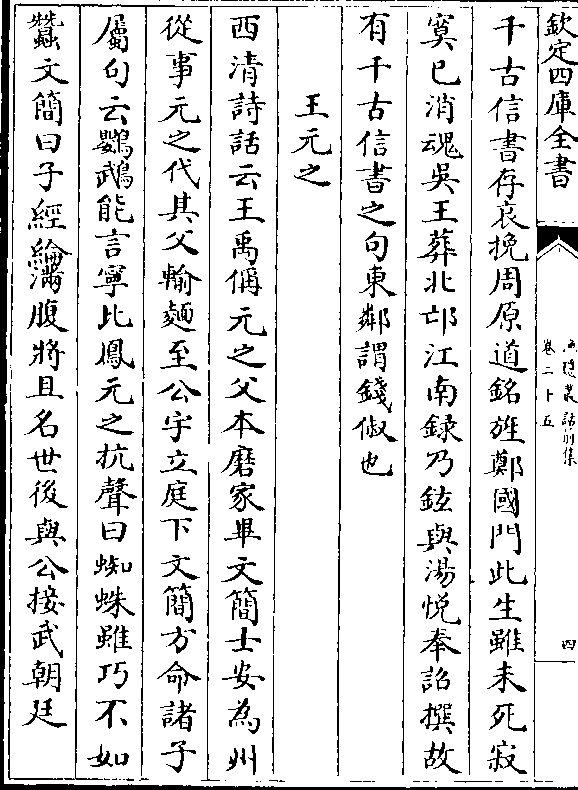 欽定四庫全書
漁隱叢話前集
卷二十五
四
千古信書存哀挽周原道銘旌鄭國門此生雖未死寂
寞已消魂吳王葬北邙江南録乃鉉與湯悅奉詔撰故
有千古信書之句東鄰謂錢俶也
王元之
西清詩話云王禹偁元之父本磨家畢文簡士安為州
從事元之代其父輸麺至公宇立庭下文簡方命諸子
屬句云鸚鵡能言寧比鳳元之抗聲曰蜘蛛雖巧不如
蠶文簡曰子經綸滿腹將且名世後與公接武朝廷